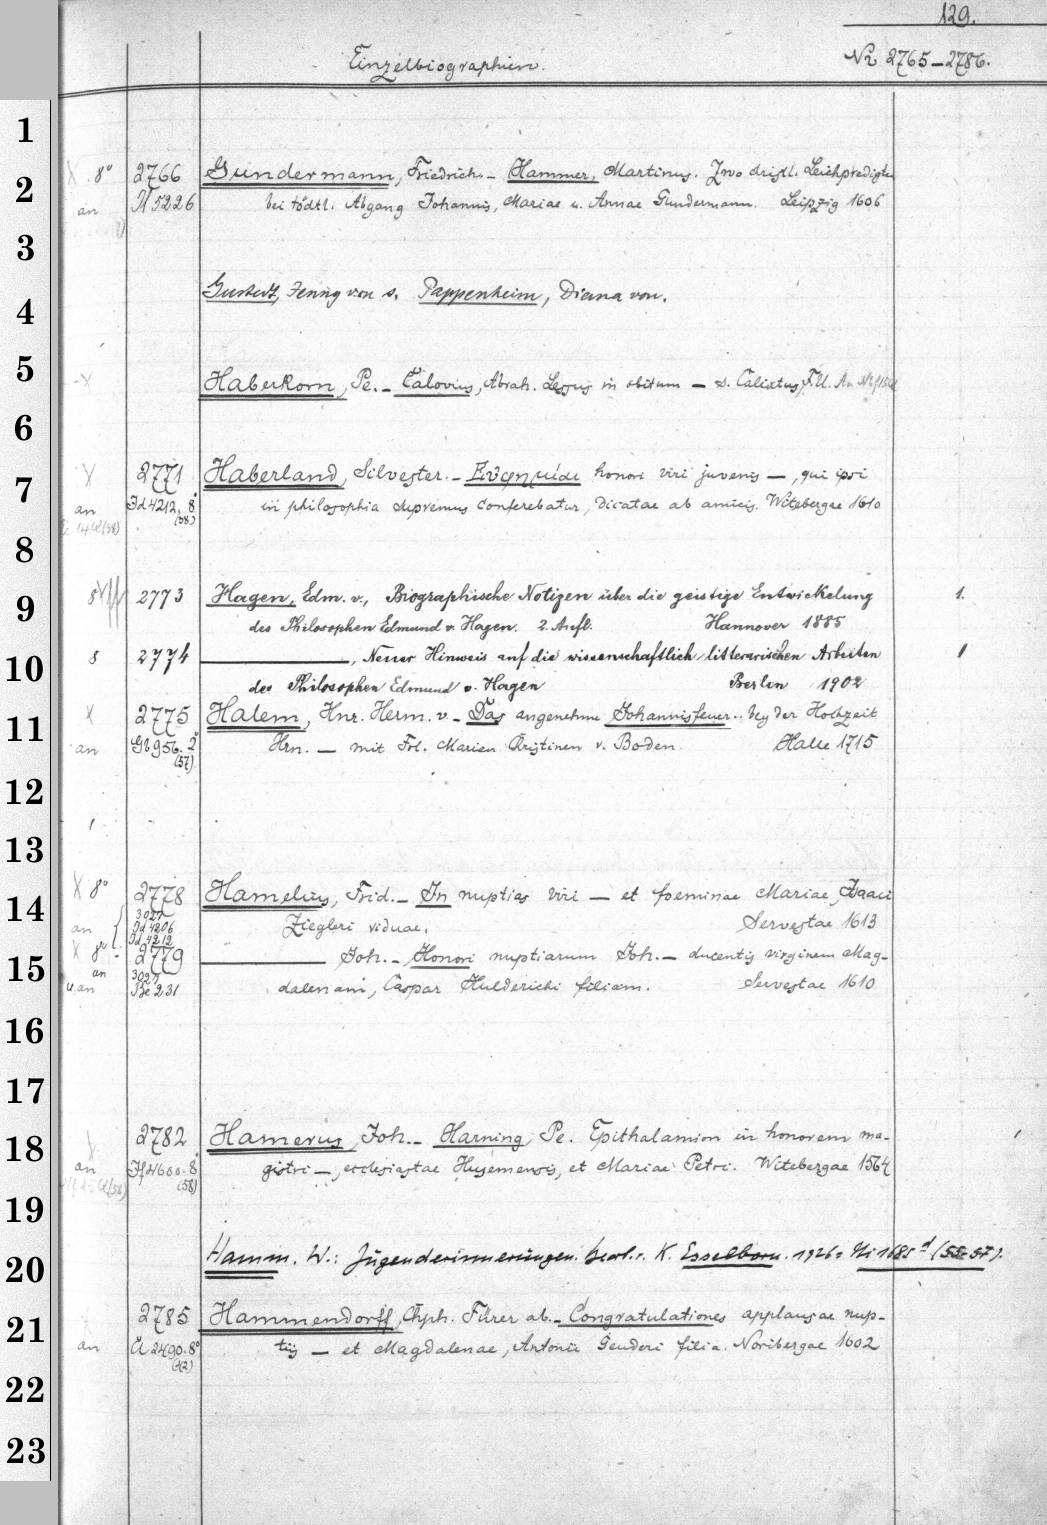 129.
Einzelbiographien. Nr. 2765–2786.
1
2
3
4
5
6
7
8
9
10
11
12
13
14
15
16
17
18
19
20
21
22
23
X 8° 2766 Gundermann, Friedrich. – Hammer, Martinus. Zwo christl. Leichpredigten
an 5226 bei tödtl. Abgang Johannis, Mariae u. Annae Gundermann. Leipzig 1606
Gustedt, Jenny von s. Pappenheim, Diana von.
X Haberkorn, Pe. – Calovius, Abrah. Lessus in obitum – s. Calixtus, F. U.
X 2771 Haberland, Silvester. – Εὐφημίαι honori viri juvenis –, qui ipsi
an Id 4212. 8° (38) in philosophia supremus conferebatur, dicatae ab amicis. Witebergae 1610
8 2773 Hagen, Edm. v., Biographische Notizen über die geistige Entwickelung 1.
des Philosophen Edmund v. Hagen. 2. Aufl. Hannover 1885
8 2774 ———, Neuer Hinweis auf die wissenschaftlich-litterarischen Arbeiten 1
des Philosophen Edmund v. Hagen Berlin 1902
X 2775 Halem, Hnr. Herm. v. – Das angenehme Johannisfeuer.. bey der Hochzeit
an Gb 956. 2° (57) Hrn. – mit Frl. Marien Christinen v. Boden. Halle 1715
X 8° 2778 Hamelius, Frid. – In nuptias viri – et foeminae Mariae, Isaaci
an 3027 Id 4206 Id 4212 Ziegleri viduae. Servestae 1613
X 8° 2779 ——— Joh. – Honori nuptiarum Joh. – ducentis virginem Mag-
an u. an 3027 Be 231 dalenam, Caspar Hulderichi filiam. Servestae 1610
2782 Hamerus, Joh. – Harning, Pe. Epithalamion in honorem ma-
an 4600. 8° (58) gistri –, ecclesiastae Husemensis, et Mariae Petri. Witebergae 1564
Hamm. W.: Jugenderinnerungen. bearb. v. K. Esselborn. 1926= Nr 1685 d (55-57).
2785 Hammendorff, Chph. Fürer ab. – Congratulationes applausae nup-
an 2490. 8° (42) tiis – et Magdalenae, Antonii Geuderi filia. Noribergae 1602